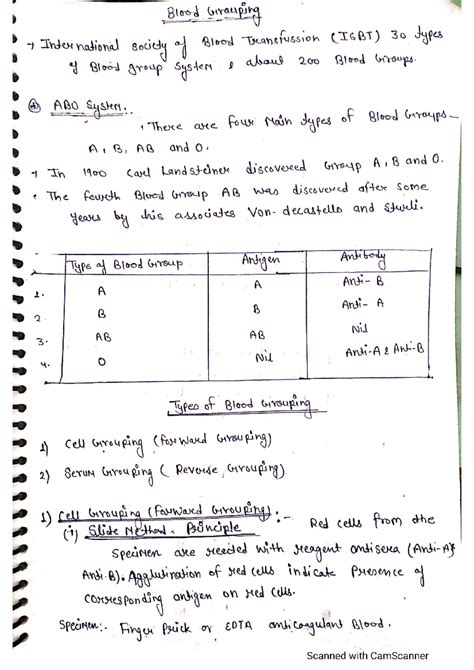 Blood Grouping
→ International Society of Blood Transfussion (ISBT) 30 types
of Blood group System & about 200 Blood Groups.
* ABO System:.
. There are four Main types of Blood Groups-
A, B, AB and O.
→ In 1900 Carl Landsteiner discovered Group A, B and O.
. The fourth Blood Group AB was discovered after some
years by his associates Von-decastello and Sturli.
Type of Blood Group Antigen Antibody
1. A A Anti-B
2. B B Anti-A
3. AB AB Nil
4. O Nil Anti-A & Anti-B
Types of Blood Grouping
1) Cell Grouping (Forward Grouping)
2) Serum Grouping (Reverse Grouping)
1) Cell Grouping (Forward Grouping) :-
(i) Slide Method. Principle Red cells from the
Specimen are reected with reagent antisera (Anti-A &
Anti-B). Agglutination of red cells indicate Presence of
corresponding antigen on red cells.
Specimen:- Finger Prick or EDTA anticoagulant Blood.
Scanned with CamScanner